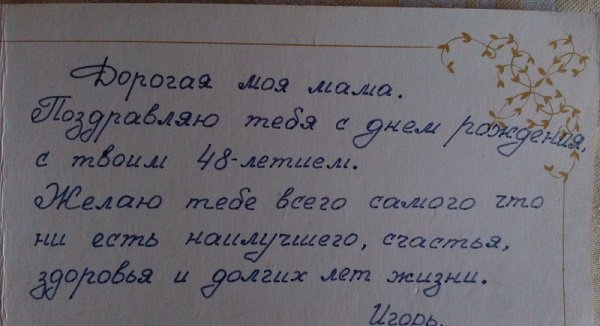 Дорогая моя мама.
Поздравляю тебя с днем рождения,
с твоим 48-летием.
Желаю тебе всего самого что
ни есть наилучшего, счастья,
здоровья и долгих лет жизни.
Игорь.